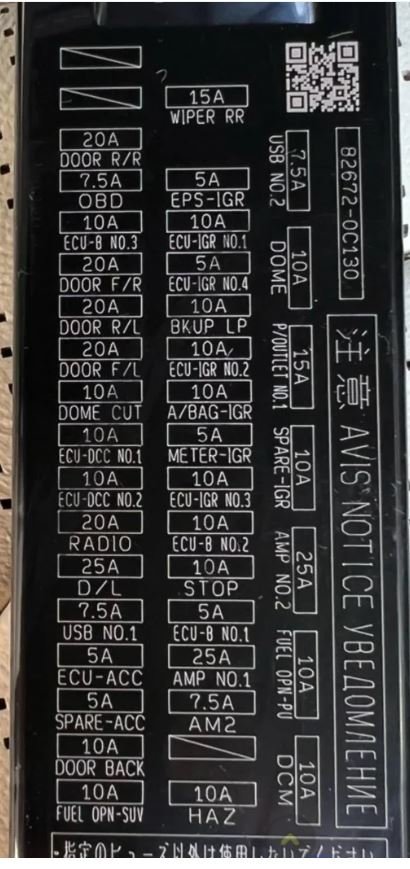 15A
WIPER RR
20A
DOOR R/R
7.5A
OBD
5A
EPS-IGR
10A
ECU-B NO.3
10A
ECU-IGR NO.1
20A
DOOR F/R
5A
ECU-IGR NO.4
20A
DOOR R/L
10A
BKUP LP
20A
DOOR F/L
10A
ECU-IGR NO.2
10A
DOME CUT
10A
A/BAG-IGR
10A
ECU-DCC NO.1
5A
METER-IGR
10A
ECU-DCC NO.2
10A
ECU-IGR NO.3
20A
RADIO
10A
ECU-B NO.2
25A
D/L
10A
STOP
7.5A
USB NO.1
5A
ECU-B NO.1
5A
ECU-ACC
25A
AMP NO.1
5A
SPARE-ACC
7.5A
AM2
10A
DOOR BACK
10A
FUEL OPN-SUV
10A
HAZ
7.5A
USB NO.2
10A
DOME
15A
P/OUTLET NO.1
10A
SPARE-IGR
25A
AMP NO.2
10A
FUEL OPN-PU
10A
DCM
82672-0C130
注意 AVIS NOTICE УВЕДОМЛЕНИЕ
・指定のヒューズ以外は使用しないでください